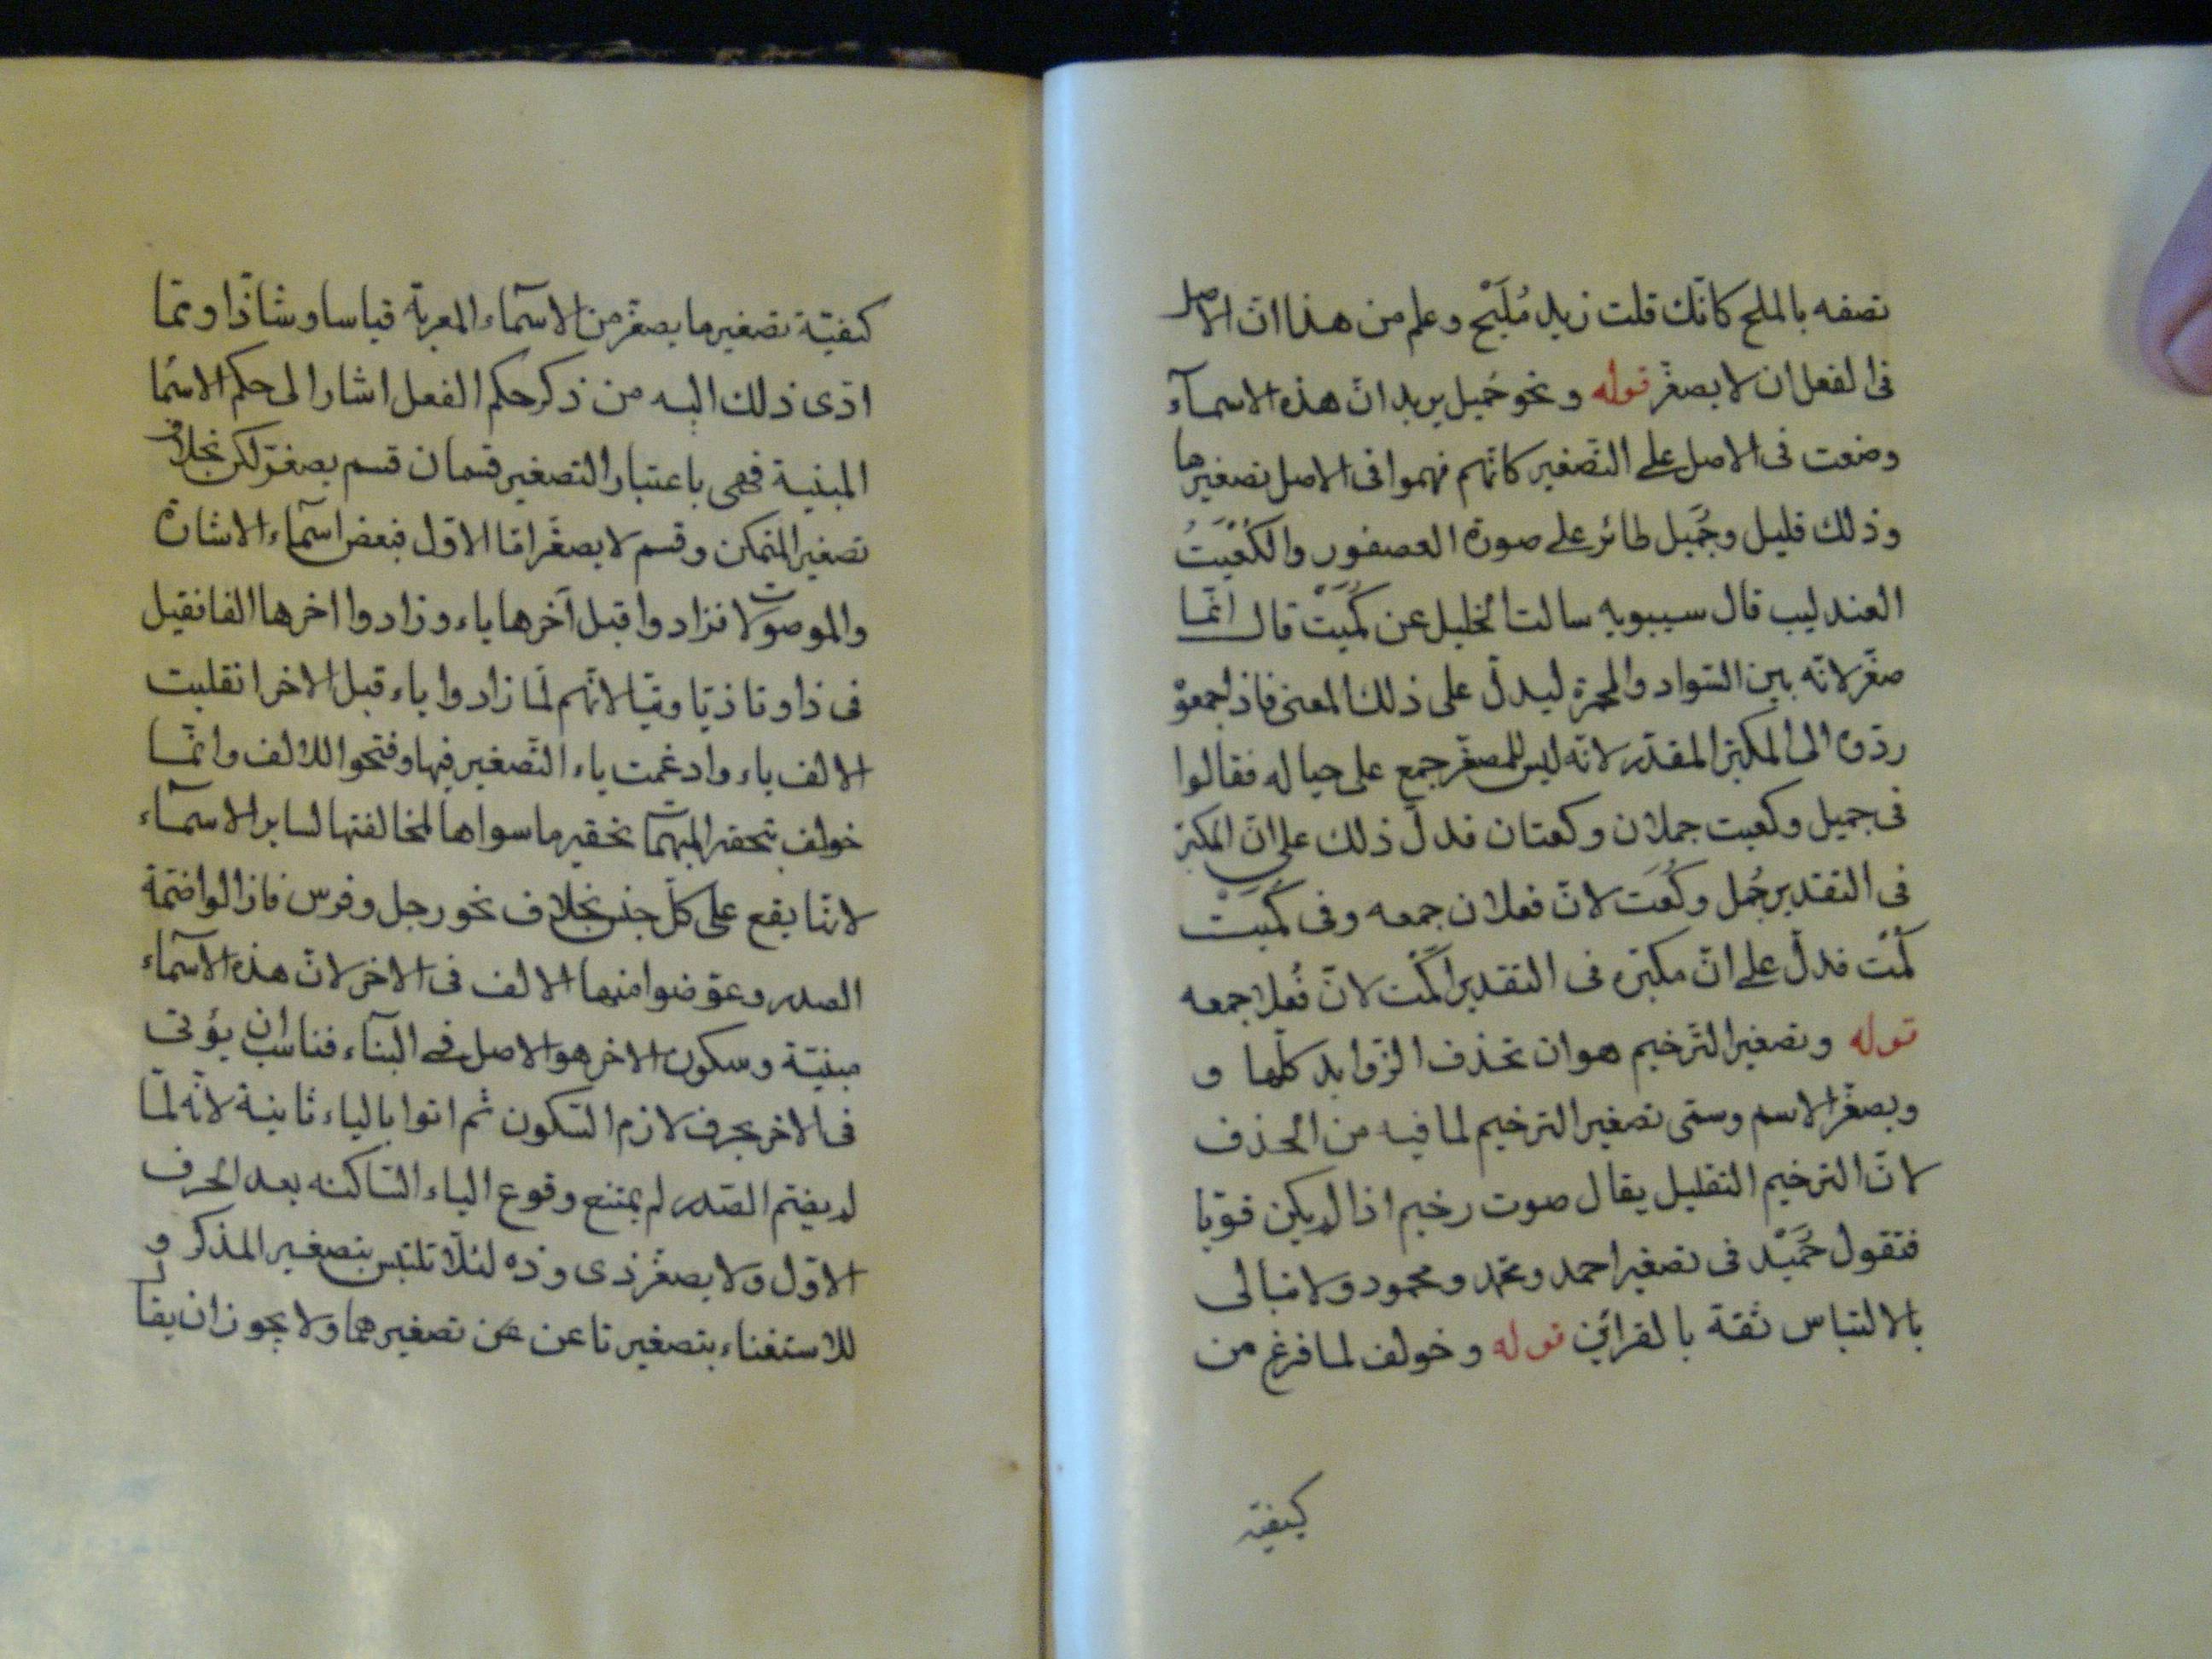 تصفه بالملح كانّك قلت زيد مُلَيّح وعلم من هذا انّ الاصل
فى الفعل ان لا يصغّر قوله ونحو جُميل يريد انّ هذه الاسمآء
وضعت فى الاصل على التّصغير كانّهم فهموا فى الاصل تصغيرها
وذلك قليل وجُمَيل طائر على صورة العصفور والكُعَيْتُ
العندليب قال سيبويه سالت الخليل عن كُمَيْت قال انّما
صغّر لانّه بين السّواد والحمرة ليدلّ على ذلك المعنى فاذا جمعوْ
ردّوه الى المكبّر المقدّر لانّه ليس للمصغّر جمع على حياله فقالوا
فى جميل وكعيت جملان وكعتان فدلّ ذلك على انّ المكبّر
فى التقدير جُمل وكُعَت لانّ فعلان جمعه وفى كُمَيْت
كُمْت فدلّ على انّ مكبّره فى التقدير اكْمَت لانّ فُعلا جمعه
قوله وتصغير التّرخيم هو ان تحذف الزّوايد كلّها و
ويصغّر الاسم وسمّى تصغير الترخيم لما فيه من الحذف
لانّ الترخيم التقليل يقال صوت رخيم اذا لم يكن قويّا
فتقول حُمَيْد فى تصغير احمد ومحمّد ومحمود ولا تبالى
بالالتباس ثقة بالقرائن قوله وخولف لما فرغ من
كيفيّة
كيفيّة تصغير ما يصغّر من الاسمآء المعربة قياسا وشاذّا وممّا
ادّى ذلك اليه من ذكر حكم الفعل اشار الى حكم الاسمٔا
المبنية فهى باعتبار التصغير قسمان قسم يصغّر لكن بخلاف
تصغير المتمكن وقسم لا يصغّر امّا الاوّل فبعض اسمآء الاشارة
والموصولات فزادوا قبل آخرها ياء وزادوا اخرها الفا فقيل
فى ذا وتا ذيّا وتيّا لانّهم لمّا زادوا ياء قبل الاخر انقلبت
الالف ياء وادغمت ياء التّصغير فيها وفتحوا للالف وانّما
خولف بتحقير المبهمات تحقير ما سواها لمخالفتها لساير الاسمآء
لانّها يقع على كلّ جنس بخلاف نحو رجل وفرس فازالوا ضمّة
الصدر وعوّضوا منها الالف فى الاخر لانّ هذه الاسمآء
مبنيّة وسكون الاخر هو الاصل فى البنآء فناسب ان يؤتى
فى الاخر بحرف لازم السّكون ثم اتوا بالياء ثانية لانّه لمّا
لم يضم الصّدر لم يمتنع وقوع الياء السّاكنه بعد الحرف
الاوّل ولا يصغّر ذى وذه لئلّا تلتبس بتصغير المذكر و
للاستغناء بتصغير تا عن عن تصغيرهما ولا يجوز ان يقال